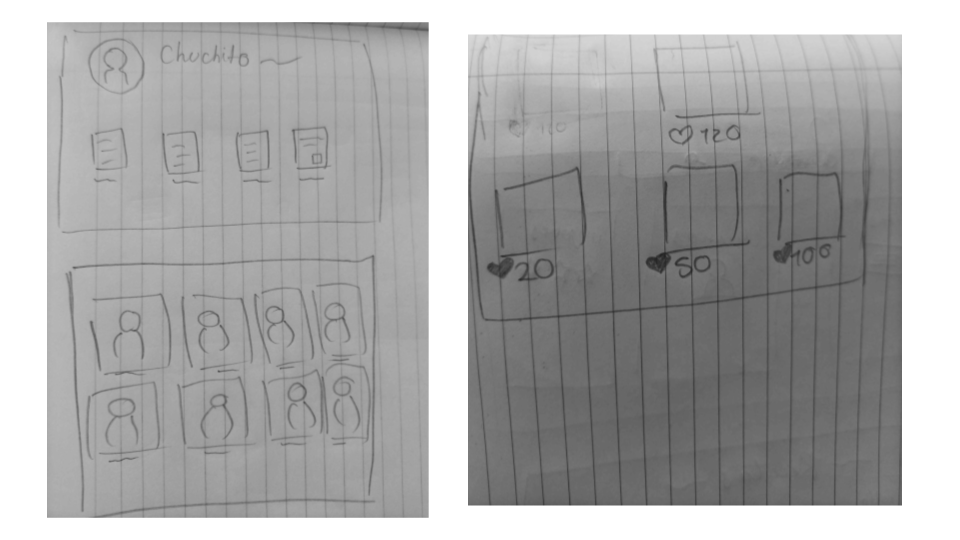 Chuchito
♡ 120
♡ 120
♥ 20
♥ 50
♥ 100